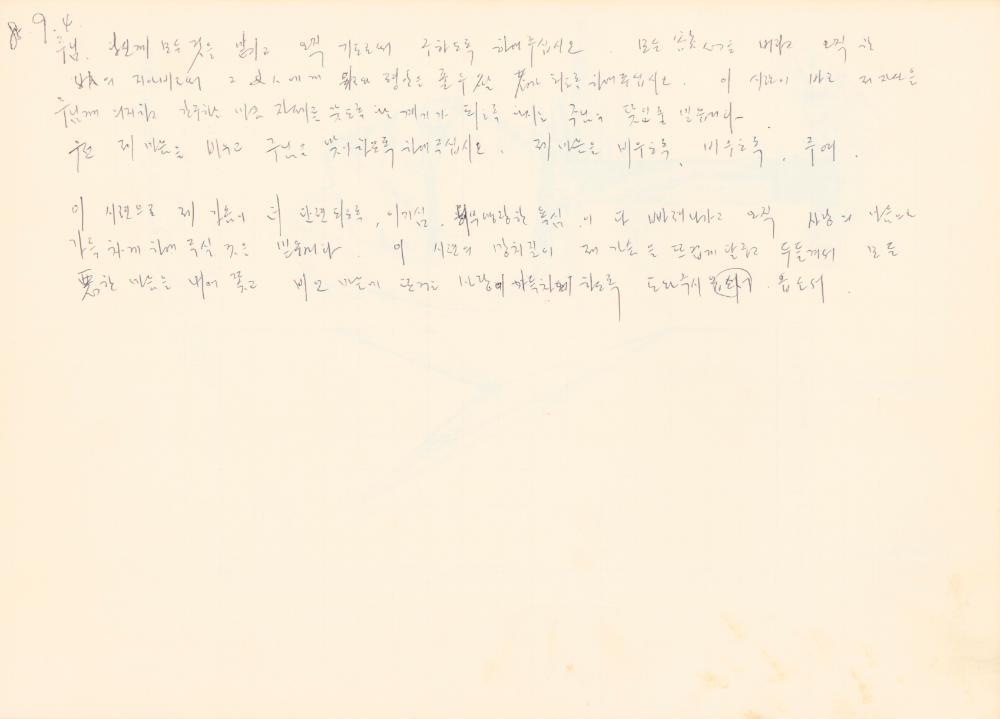 9.4
주님. 당신께 모든 것을 맡기고 오직 기도로써 구하도록 하여 주십시오. 모든 버리고 오직 한
의 지아비로써 그 에게 평안을 줄 수 있는 되도록 하여 주십시오. 이 시련이 바로 저 자신을
주님께 의지하고 간구하는 자세를 갖도록 한 계기가 되도록 하시는 주님의 뜻임을 믿습니다.
우선 제 마음을 비우고 주님을 맞이하도록 하여 주십시오. 제 마음을 비우도록, 비우도록, 주여.
이 시련으로 제 가슴이 더 단련되도록, 이기심, 허무맹랑한 욕심이 다 빠져나가고 오직 사랑의 마음만
가득하게 하여 주실 것을 믿습니다. 이 시련의 망치질이 제 가슴을 뜨겁게 달구고 두들겨서 모든
惡한 마음을 내어 쫓고 비인 마음에 뜨거운 사랑이 가득하게 하도록 도와주시옵소서. 옵소서.